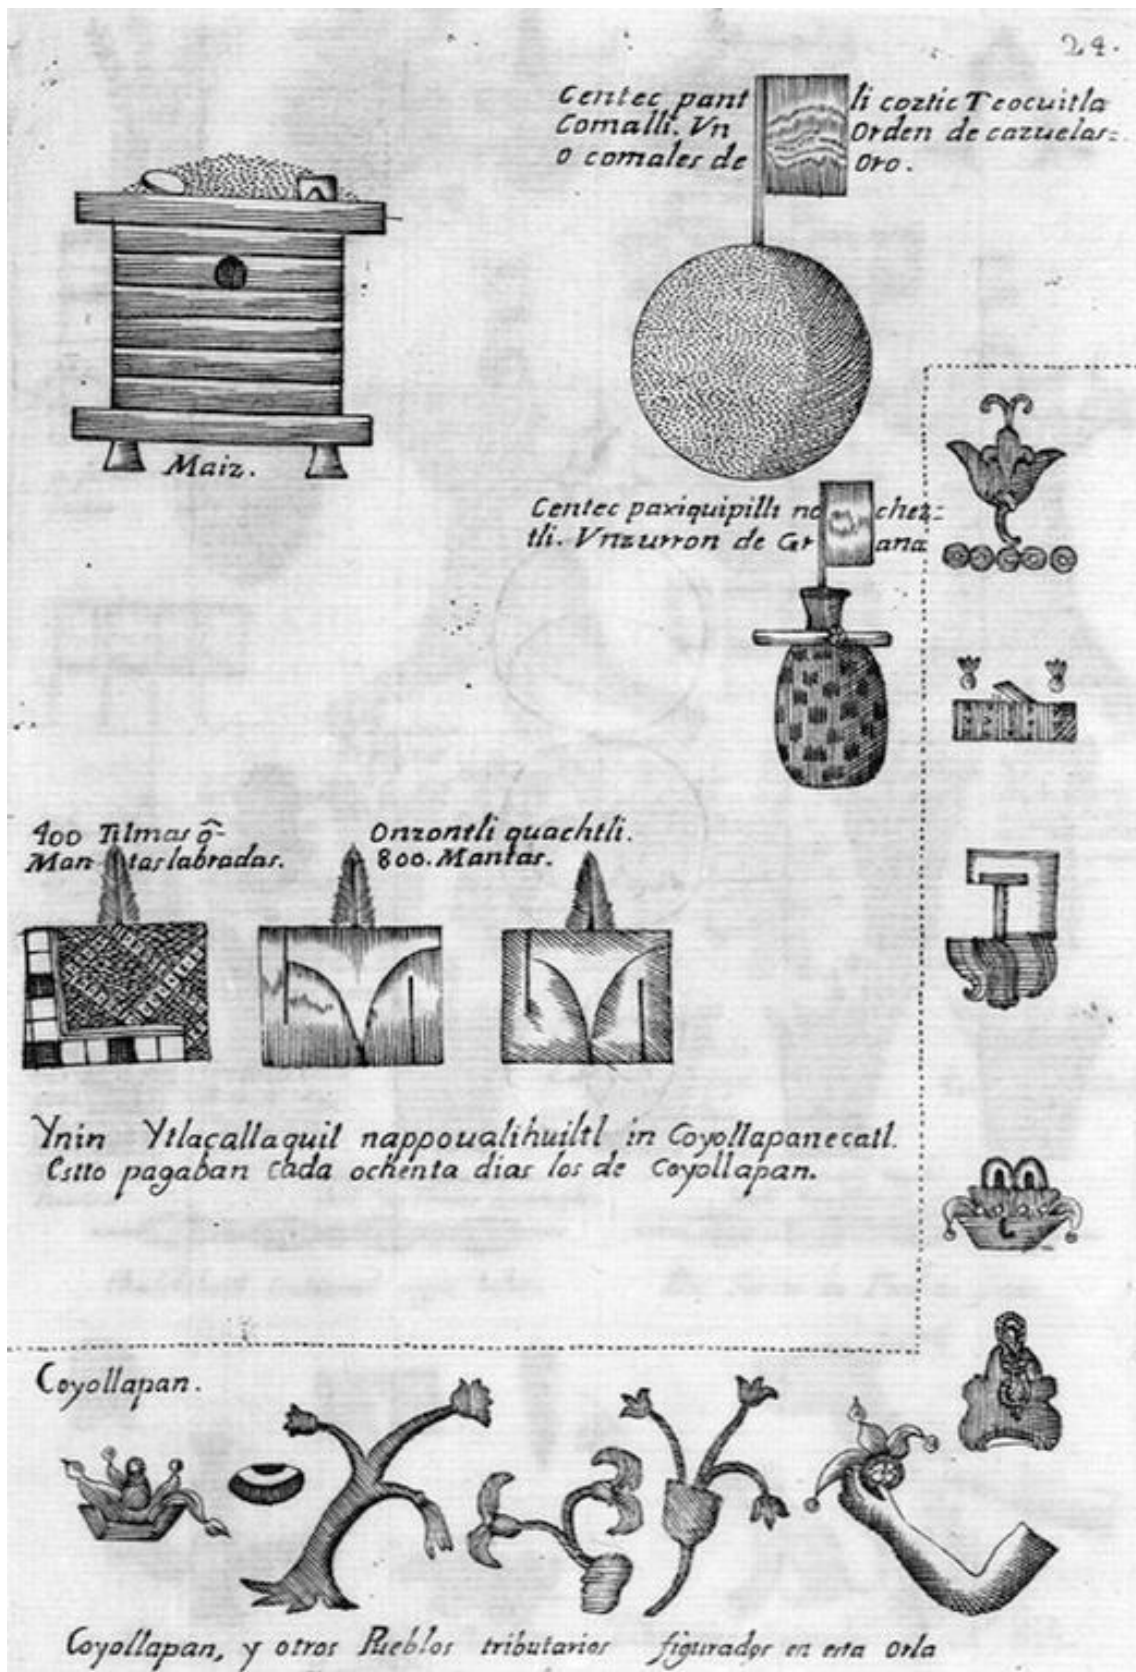 24.
Centec pantli coztic Teocuitla
Comalli. Vn Orden de cazuelas=
o comales de Oro.
Maiz.
Centec paxiquipilli nochez=
tli. Vnzurron de Grana
400 Tilmas q̂-
Mantas labradas.
Onzontli quachtli.
800. Mantas.
Ynin Ytlaçallaquil nappoualihuiltl in Coyollapanecatl.
Estto pagaban cada ochenta dias los de Coyollapan.
Coyollapan.
Coyollapan, y otros Pueblos tributarios figurados en esta Orla